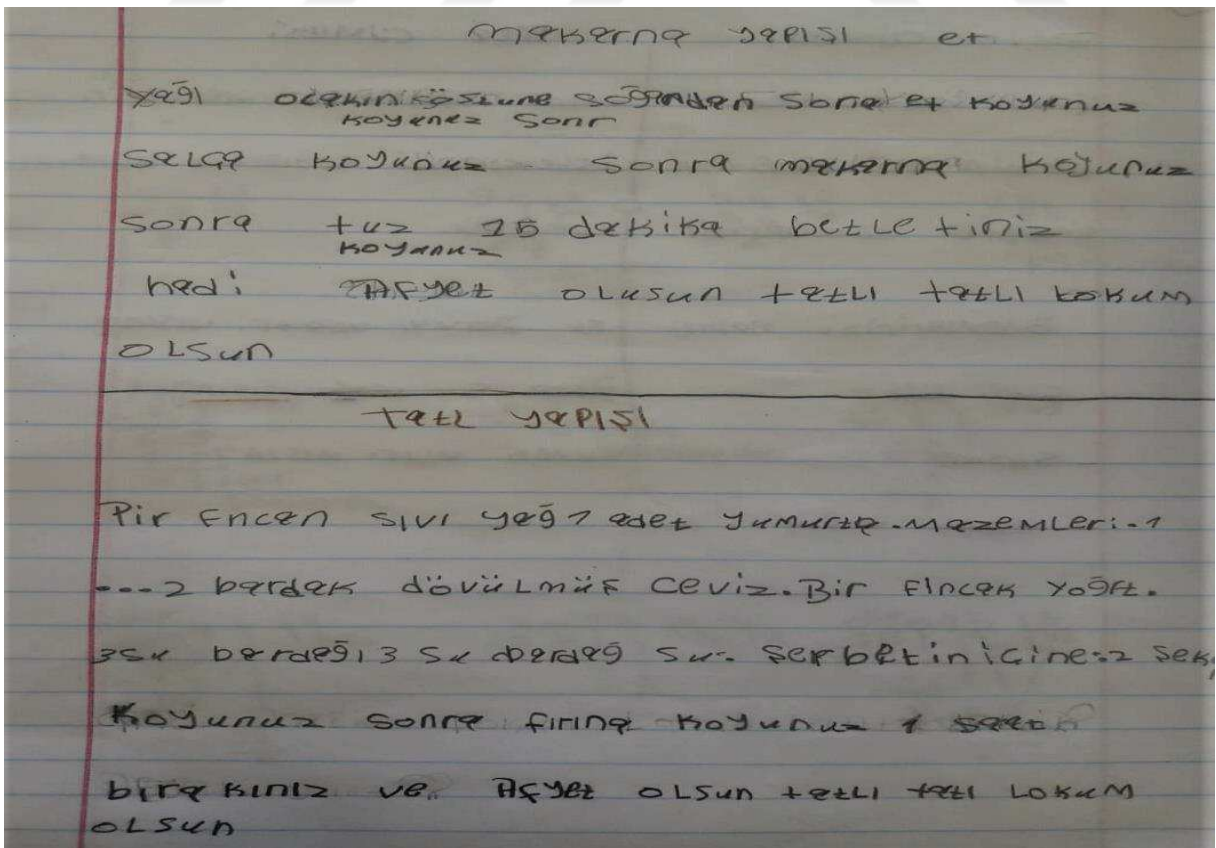 makarna yapışı et
yağı ocakın üstüne soğandan sonra et koyunuz
koyanez sonr
salça koyunuz sonra makarna koyunuz
sonra tuz 25 dakika betletiniz
koyanuz
hadi Afyet olusun tatlı tatlı lokum
olsun
tatl yapışı
Pir Fncan sıvı yağ 1 adet yumurta. Mazemleri.-1
---2 bardak dövülmüş ceviz. Bir Fincak yoğrt.
3 su bardağı, 3 su bardağ su. Serbetin içine:2 şek
koyunuz sonra fırına koyunuz 1 saat
birakınız ve Afyet olsun tatlı tatlı lokum
olsun